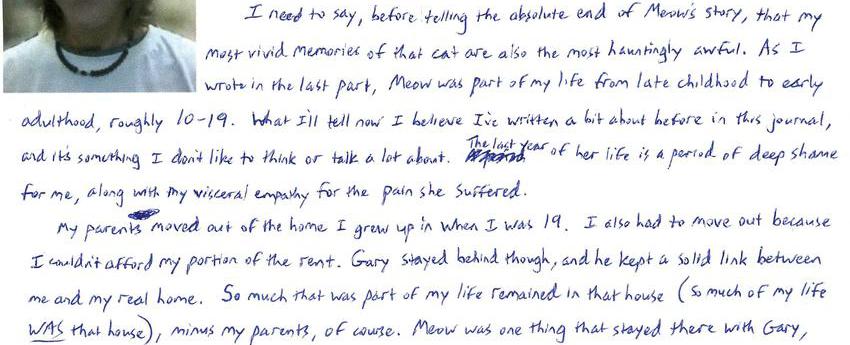 I need to say, before telling the absolute end of Meow's story, that my
most vivid memories of that cat are also the most hauntingly awful. As I
wrote in the last part, Meow was part of my life from late childhood to early
adulthood, roughly 10-19. What I'll tell now I believe I've written a bit about before in this journal,
and it's something I don't like to think or talk a lot about. The last year of her life is a period of deep shame
for me, along with my visceral empathy for the pain she suffered.
My parents moved out of the home I grew up in when I was 19. I also had to move out because
I couldn't afford my portion of the rent. Gary stayed behind though, and he kept a solid link between
me and my real home. So much that was part of my life remained in that house (so much of my life
WAS that house), minus my parents, of course. Meow was one thing that stayed there with Gary,